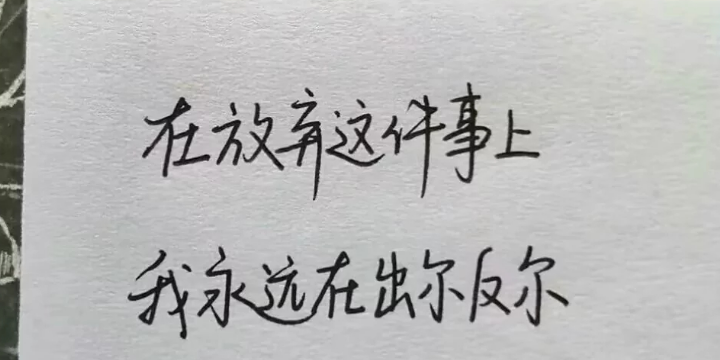 在放弃这件事上
我永远在出尔反尔